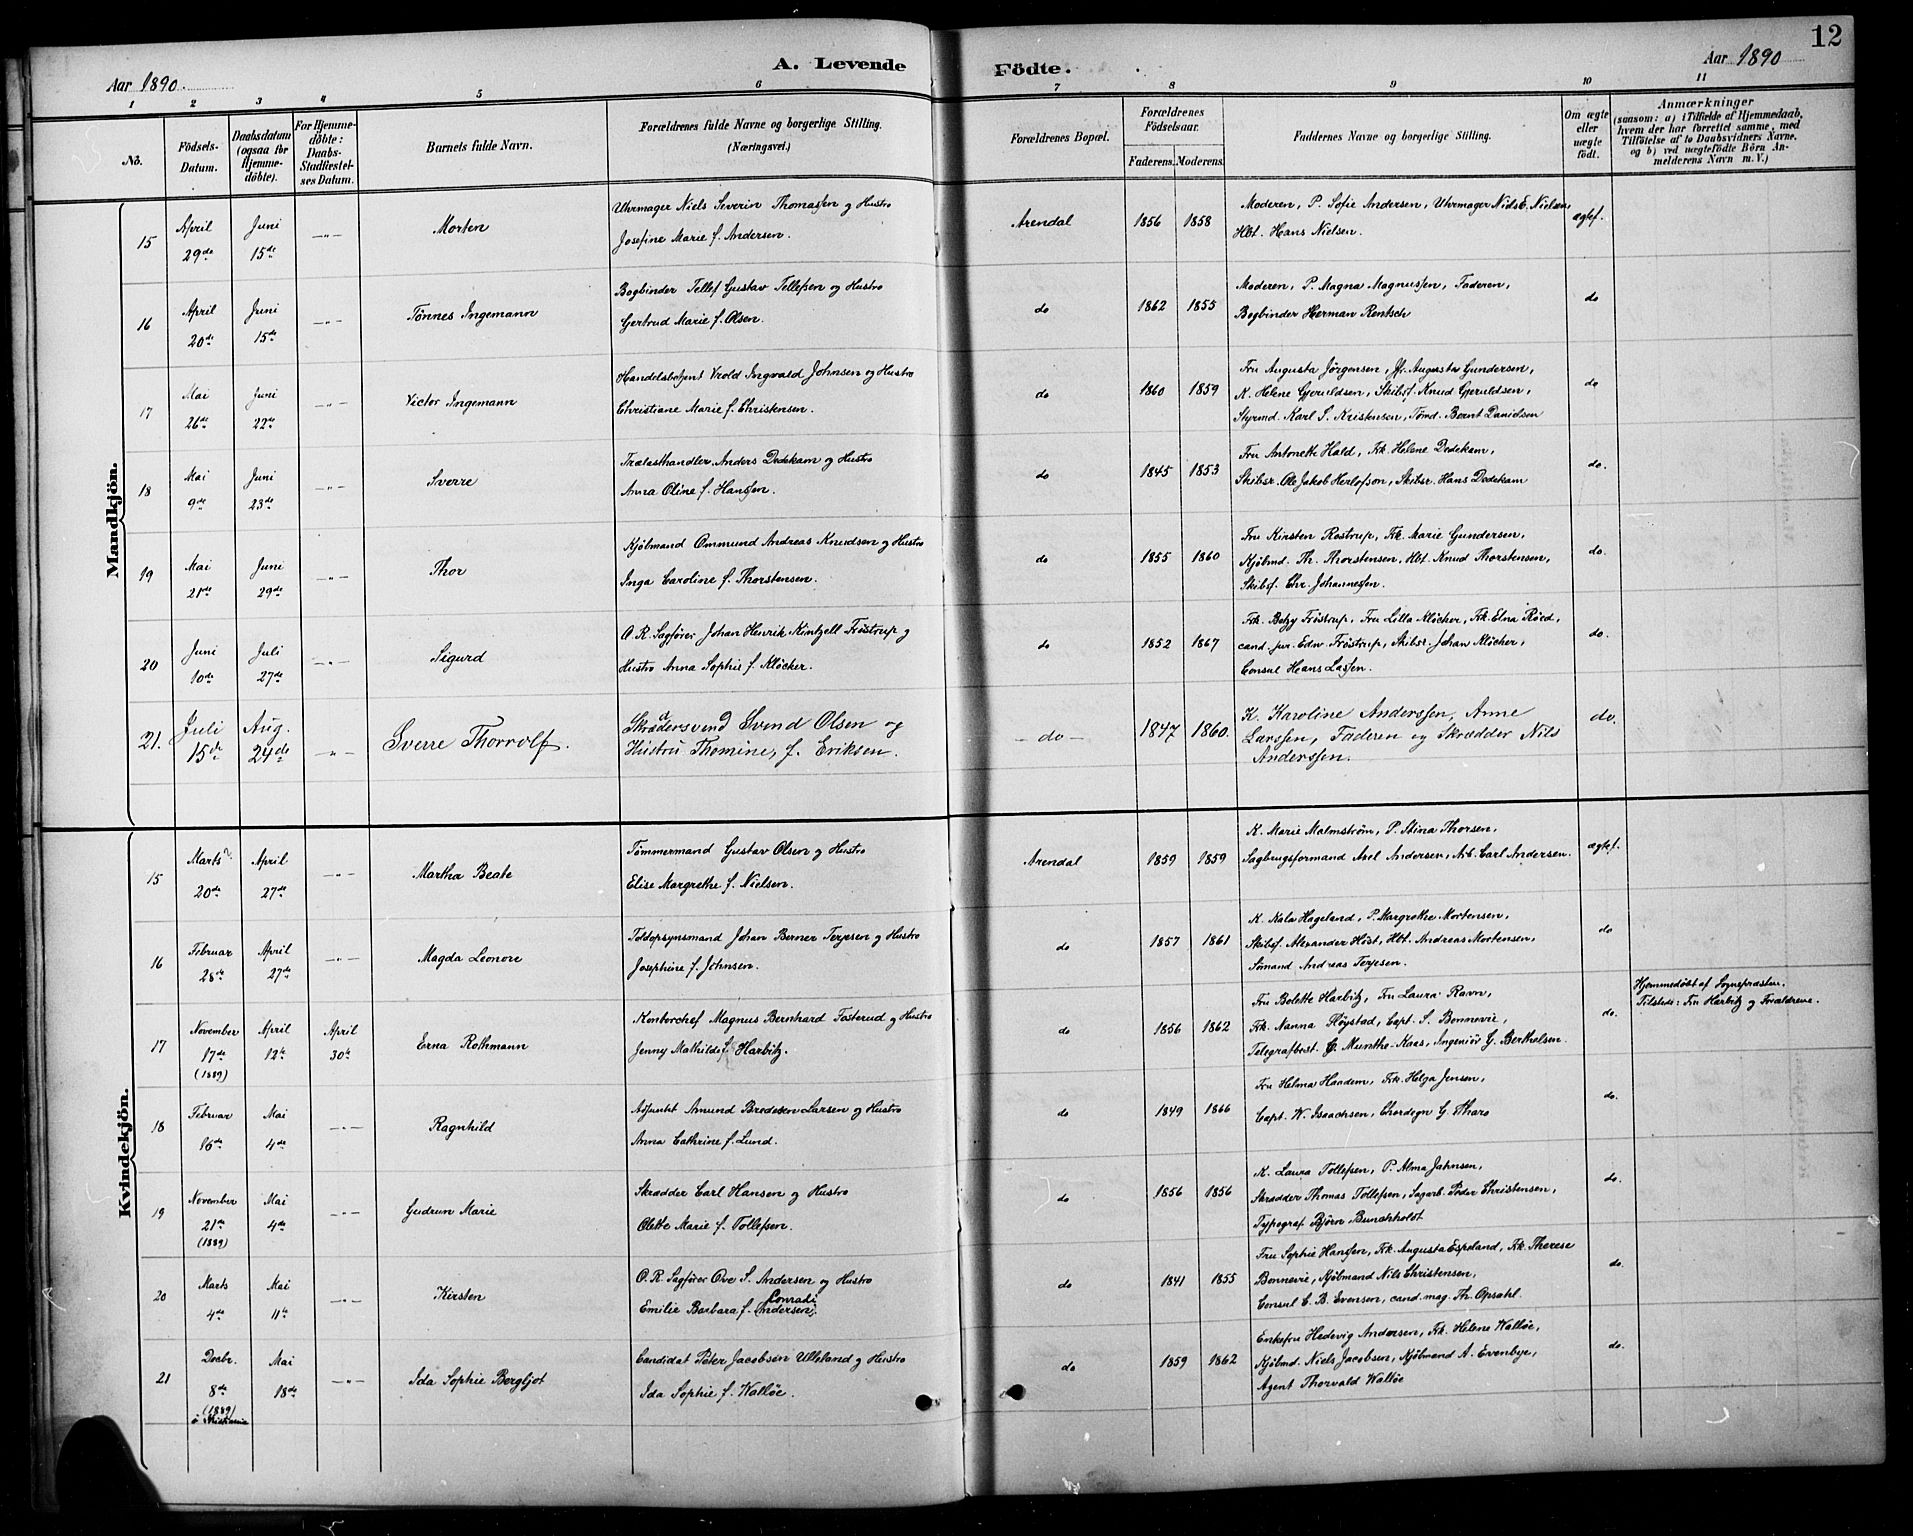 12
Aar 1890.
A. Levende Födte.
Aar 1890
1 2 3 4 5 6 7 8 9 10 11
No.
Födsels-Datum.
Daabsdatum (ogsaa for Hjemme-döbte).
For Hjemme-döbte: Daabs-Stadfæstel-ses Datum.
Barnets fulde Navn.
Forældrenes fulde Navne og borgerlige Stilling. (Næringsvei.)
Forældrenes Bopæl.
Forældrenes Födselsaar.
Faderens. Moderens.
Faddernes Navne og borgerlige Stilling.
Om ægte eller uægte födt.
Anmærkninger
(saasom: a) i Tilfælde af Hjemmedaab, hvem der har forrettet samme, med Tilföielse af to Daabsvidners Navne, og b) ved uægtefödte Börn An-melderens Navn m. V.)
Mandkjön.
15 April 29de Juni 15de —"— Morten
Uhrmager Niels Severin Thomassen og Hustro
Josefine Marie f. Andersen.
Arendal 1856 1858
Moderen, P. Sofie Andersen, Uhrmager Niels E. Nielsen
Hbt. Hans Nielsen.
ægtef.
16 April 20de Juni 15de —"— Tönnes Ingemann
Bogbinder Tellef Gustav Tellefsen og Hustro
Gertrud Marie f. Olsen.
do 1862 1855
Moderen, P. Magna Magnussen, Faderen,
Bogbinder Herman Rentsch
do
17 Mai 26de Juni 22de —"— Victor Ingemann
Handelsbetjent Vrold Ingvald Johnsen og Hustro
Christiane Marie f. Christensen.
do 1860 1859
Fru Augusta Jörgensen, Jfr. Augusta Gundersen,
K. Helene Gjeruldsen, Skibsf. Knud Gjeruldsen,
Styrmd. Karl S. Kristensen, Tömd. Bernt Danielsen
do
18 Mai 9de Juni 23de —"— Sverre
Trælasthandler Anders Dedekam og Hustro
Anna Oline f. Hanssen.
do 1845 1853
Fru Antonette Hald, Frk. Helene Dedekam,
Skibsr. Ole Jakob Herlofson, Skibsr. Hans Dedekam
do.
19 Mai 21de Juni 29de —"— Thor
Kjöbmand Ommund Andreas Knudsen og Hustro
Inga Caroline f. Thorstensen.
do 1855 1860
Fru Kirsten Rostrup, Frk. Marie Gundersen,
Kjöbmd. Th. Thorstensen, Hbt. Knud Thorstensen,
Skibsf. Chr. Johannessen.
do.
20 Juni 10de Juli 27de —"— Sigurd
O. R. Sagförer Johan Henrik Kintzell Fröstrup og
Hustro Anna Sophie f. Klöcker.
do 1852 1867
Frk. Betzy Fröstrup, Fru Lilla Klöcker, Frk. Elna Röed,
cand. jur. Edw. Fröstrup, Skibsr. Johan Klöcker,
Consul Hans Lassen.
do.
21. Juli 15de Aug. 24de —"— Sverre Thorrolf.
Skrædersvend Svend Olsen og
Hustru Thomine, f. Eriksen.
— do — 1847 1860.
K. Karoline Anderssen, Anne
Larssen, Faderen og Skrædder Nils
Anderssen.
do.
Kvindekjön.
15 Marts 20de April 27de —"— Martha Beate
Tömmermand Gustav Olsen og Hustro
Elise Margrethe f. Nielsen.
Arendal 1859 1859
K. Marie Malmström, P. Stina Thorsen,
Sagbrugsformand Axel Andersen, Arb. Carl Andersen.
ægtef.
16 Februar 28de April 27de —"— Magda Leonore
Toldopsynsmand Johan Berner Terjesen og Hustro
Josephine f. Johnsen.
do 1857 1861
K. Kala Hageland, P. Margrethe Mortensen,
Skibsf. Alexander Höst, Hbt. Andreas Mortensen,
Sömand Andreas Terjesen.
do
17 November 17de (1889) April 12te April 30te Erna Rothmann
Kontorchef Magnus Bernhard Fosterud og Hustro
Jenny Mathilde f. Harbitz.
do 1856 1862
Fru Bolette Harbitz, Fru Laura Ravn,
Frk. Nanna Flöystad, Capt. S. Bonnevie,
Telegrafbest. G. Munthe-Kaas, Ingeniör G. Berthelsen.
do.
Hjemmedöbt af Sognepræsten.
Tilstede: Fru Harbitz og Forældrene.
18 Februar 16de Mai 4de —"— Ragnhild
Adjunkt Amund Bredesen Larsen og Hustro
Anna Cathrine f. Lund.
do 1849 1866
Fru Helma Haadem, Frk. Helga Jensen,
Capt. W. Isaachsen, Chordegn G. Tharo
do.
19 November 21de (1889) Mai 4de —"— Gudrun Marie
Skrædder Carl Hansen og Hustro
Olette Marie f. Tollefsen.
do 1856 1856
K. Laura Tollefsen, P. Alma Jahnsen,
Skrædder Thomas Tollefsen, Sagarb. Peder Christensen,
Typograf Björn Bunchholdt
do.
20 Marts 4de Mai 11te —"— Kirsten
O. R. Sagförer Ove S. Andersen og Hustro
Emilie Barbara f. (Andersen) Conradi
do 1841 1855
Fru Sophie Hanssen, Frk. Augusta Espeland, Frk. Therese
Bonnevie, Kjöbmand Nils Christensen,
Consul C. B. Evensen, cand. mag. Th. Opsahl
do.
21 Decbr. 8de (1889) i Kristiania Mai 18de —"— Ida Sophie Bergljot
Candidat Peter Jacobsen Ulleland og Hustro
Ida Sophie f. Walløe.
do 1859 1862
Enkefru Hedevig Andersen, Frk. Helene Walløe,
Kjöbmd. Niels Jacobsen, Kjöbmand A. Evenbye,
Agent Thorvald Walløe
do.